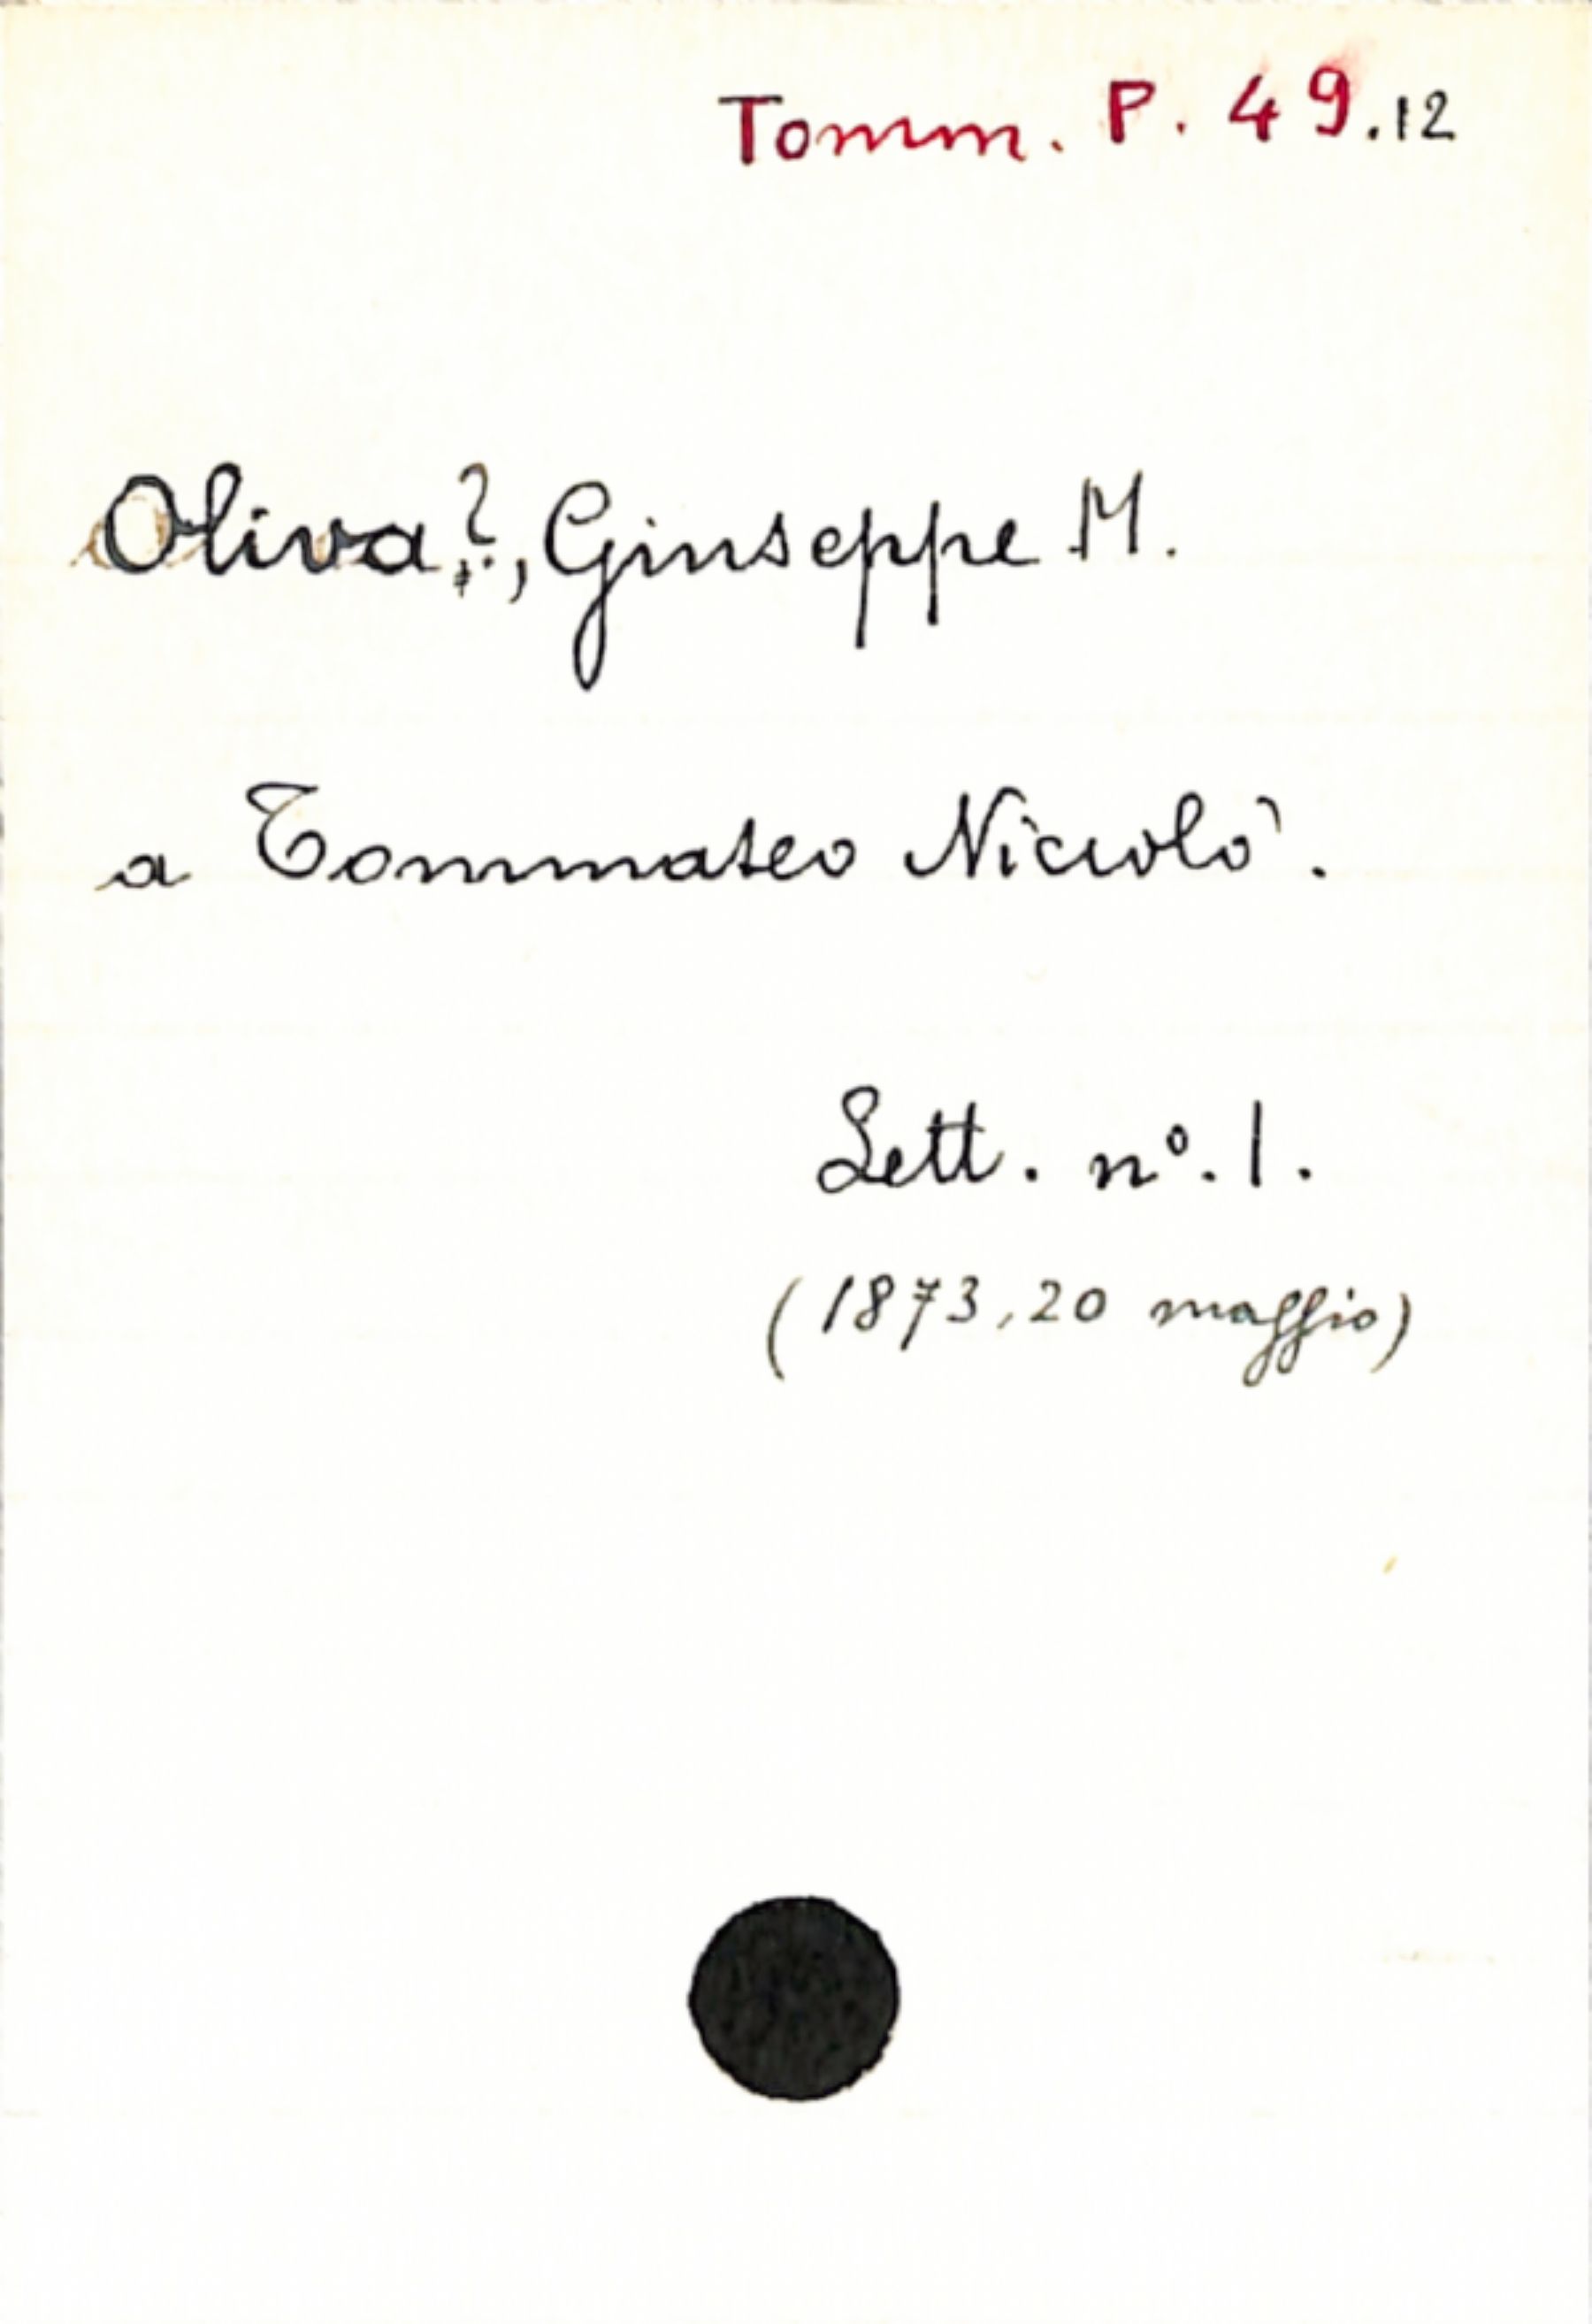 Tomm. P. 49.12
Oliva?, Giuseppe M.
a Tommaseo Niccolò.
Lett. nº. 1.
(1873, 20 maggio)